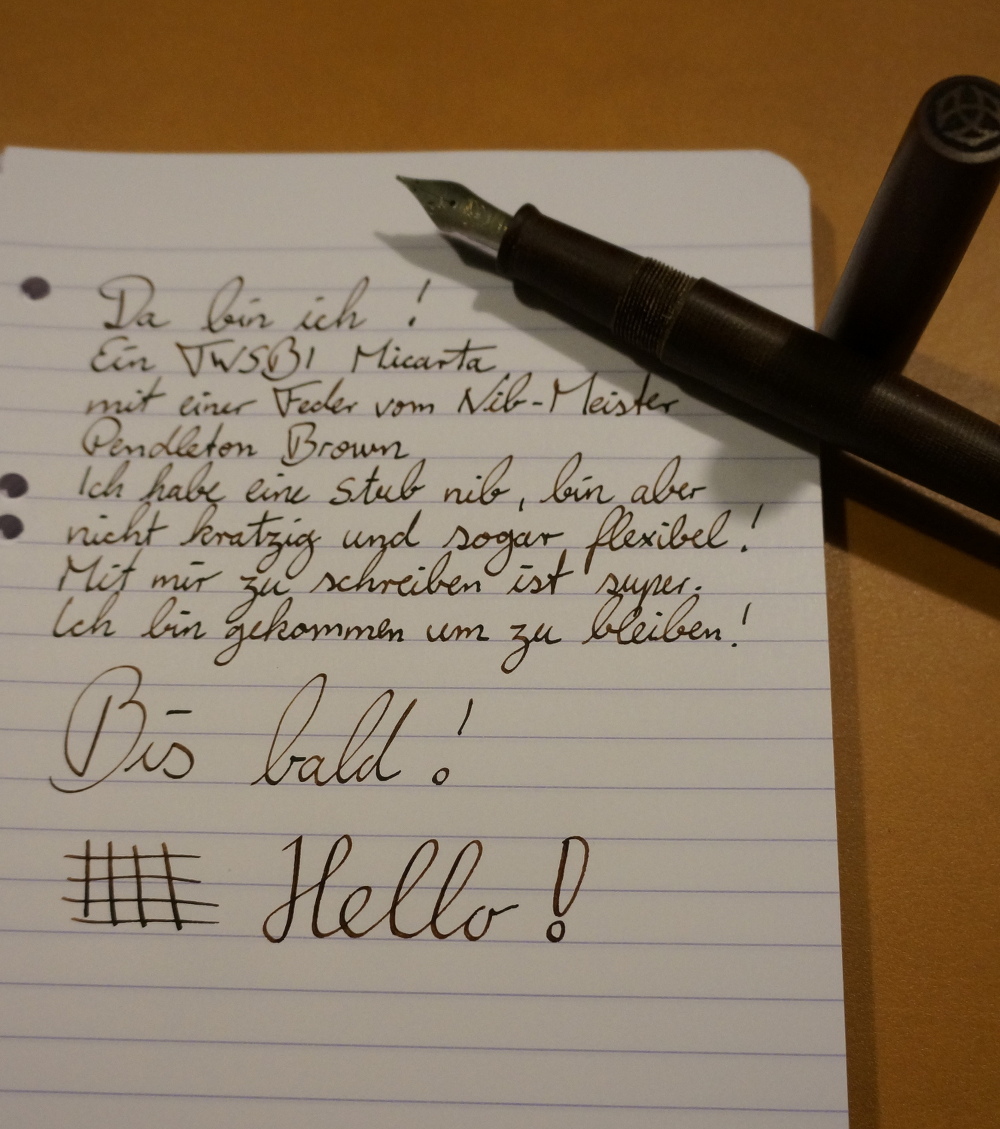 Da bin ich !
Ein TWSBI Micarta
mit einer Feder vom Nib-Meister
Pendleton Brown
Ich habe eine stub nib, bin aber
nicht kratzig und sogar flexibel!
Mit mir zu schreiben ist super.
Ich bin gekommen um zu bleiben!
Bis bald!
Hello!